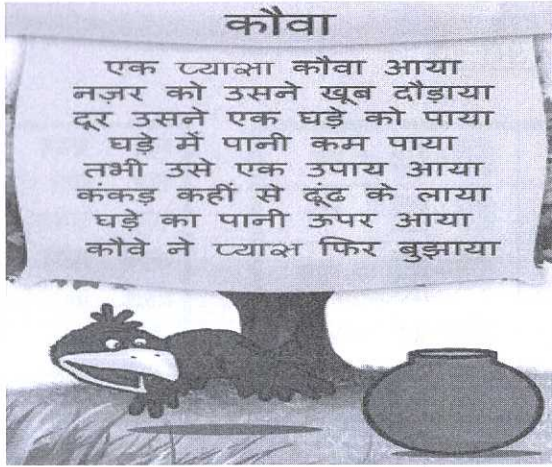 कौवा
एक प्यासा कौवा आया
नज़र को उसने खूब दौड़ाया
दूर उसने एक घड़े को पाया
घड़े में पानी कम पाया
तभी उसे एक उपाय आया
कंकड़ कहीं से ढूंढ के लाया
घड़े का पानी ऊपर आया
कौवे ने प्यास फिर बुझाया